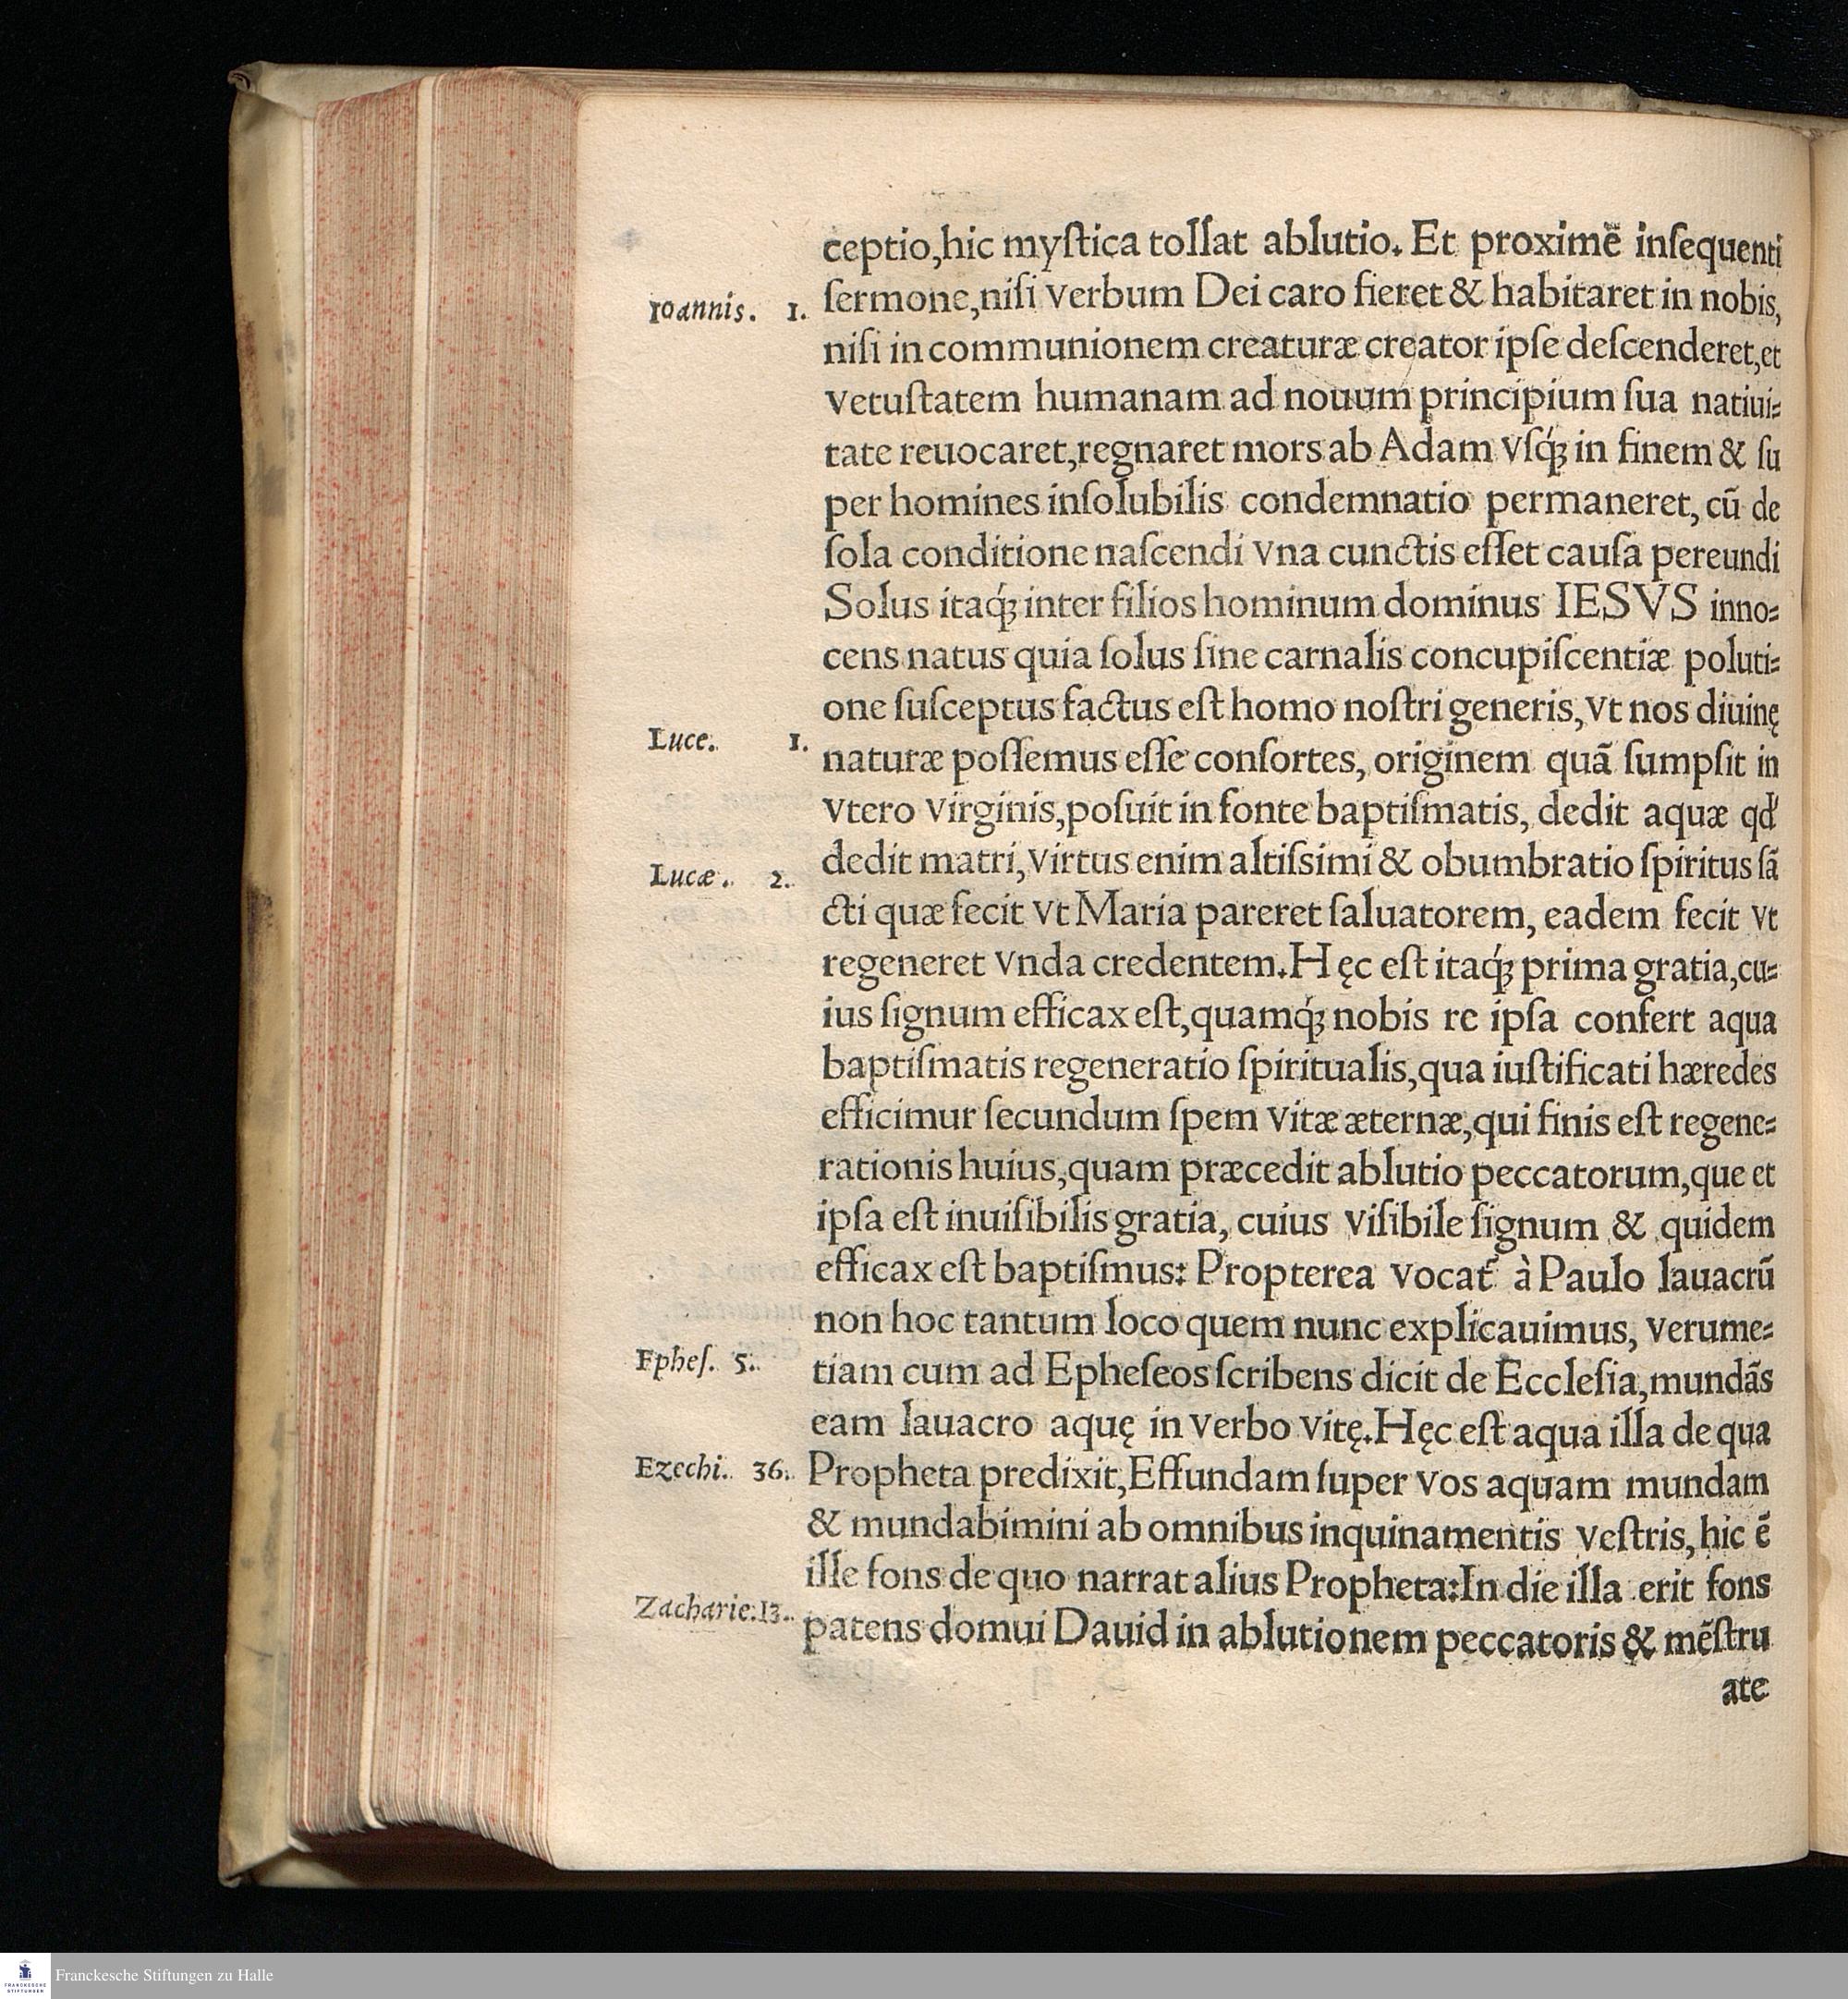 ceptio,hic myſtica tollat ablutio. Et proximẽ inſequenti
Ioannis. 1.
ſermone,niſi verbum Dei caro fieret & habitaret in nobis,
niſi in communionem creaturæ creator ipſe deſcenderet,et
vetuſtatem humanam ad nouum principium ſua natiui⸗
tate reuocaret,regnaret mors ab Adam vſq́ꝫ in finem & ſu
per homines inſolubilis condemnatio permaneret, cũ de
ſola conditione naſcendi vna cunctis eſſet cauſa pereundi
Solus itaq́ꝫ inter filios hominum dominus IESVS inno⸗
cens natus quia ſolus ſine carnalis concupiſcentiæ poluti⸗
one ſuſceptus factus eſt homo noſtri generis,vt nos diuinę
Luce. 1.
naturæ poſſemus eſſe conſortes, originem quã ſumpſit in
vtero virginis,poſuit in fonte baptiſmatis, dedit aquæ qd'
dedit matri,virtus enim altiſsimi & obumbratio ſpiritus ſã
Lucæ. 2.
cti quæ fecit vt Maria pareret ſaluatorem, eadem fecit vt
regeneret vnda credentem.Hęc eſt itaq́ꝫ prima gratia,cu⸗
ius ſignum efficax eſt,quamq́ꝫ nobis re ipſa confert aqua
baptiſmatis regeneratio ſpiritualis,qua iuſtificati hæredes
efficimur ſecundum ſpem vitæ æternæ,qui finis eſt regene⸗
rationis huius,quam præcedit ablutio peccatorum,que et
ipſa eſt inuiſibilis gratia, cuius viſibile ſignum & quidem
efficax eſt baptiſmus: Propterea vocat̃ à Paulo lauacrũ
non hoc tantum loco quem nunc explicauimus, verume⸗
Epheſ. 5.
tiam cum ad Epheſeos ſcribens dicit de Eccleſia,mundãs
eam lauacro aquę in verbo vitę.Hęc eſt aqua illa de qua
Ezechi. 36.
Propheta predixit,Effundam ſuper vos aquam mundam
& mundabimini ab omnibus inquinamentis veſtris, hic ẽ
ille fons de quo narrat alius Propheta:In die illa erit fons
Zacharie.13.
patens domui Dauid in ablutionem peccatoris & mẽſtru
ate
Franckesche Stiftungen zu Halle
FRANCKESCHE
STIFTUNGEN